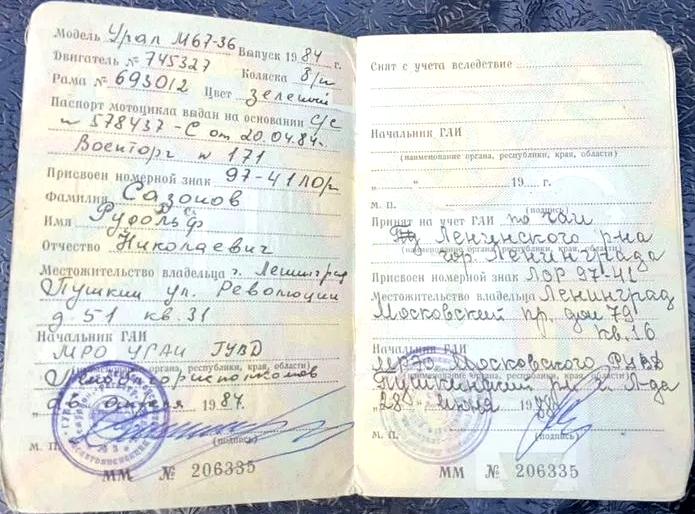 Модель Урал М67-36 Выпуск 1984 г.
Двигатель № 745327
Рама № 693012 Коляска б/н
Цвет зеленый
Паспорт мотоцикла выдан на основании с/с
№ 578437-С от 20.04.84г.
Военторг № 171
Присвоен номерной знак 97-41 ЛОР
Фамилия Сазонов
Имя Рудольф
Отчество Николаевич
Местожительство владельца г. Ленинград
Пушкин ул. Революции
д. 51 кв. 31
Начальник ГАИ
МРО УГАИ ГУВД
(наименование органа, республики, края, области)
апреля 1984.
(подпись)
М. П.
ММ № 206335
Снят с учета вследствие
Начальник ГАИ
(наименование органа, республики, края, области)
„ “ 19 г.
М. П. (подпись)
Принят на учет ГАИ
Ленинского р-на
(наименование органа, республики, края, области)
гор. Ленинграда
Присвоен номерной знак ЛОР 97-41
Местожительство владельца Ленинград
Московский пр. дом 79
кв. 16
Начальник ГАИ
Московского РУВД
(наименование органа, республики, края, области)
Пушкинский р-н г. Л-да
„28“ июня 1988
М. П. (подпись)
ММ № 206335